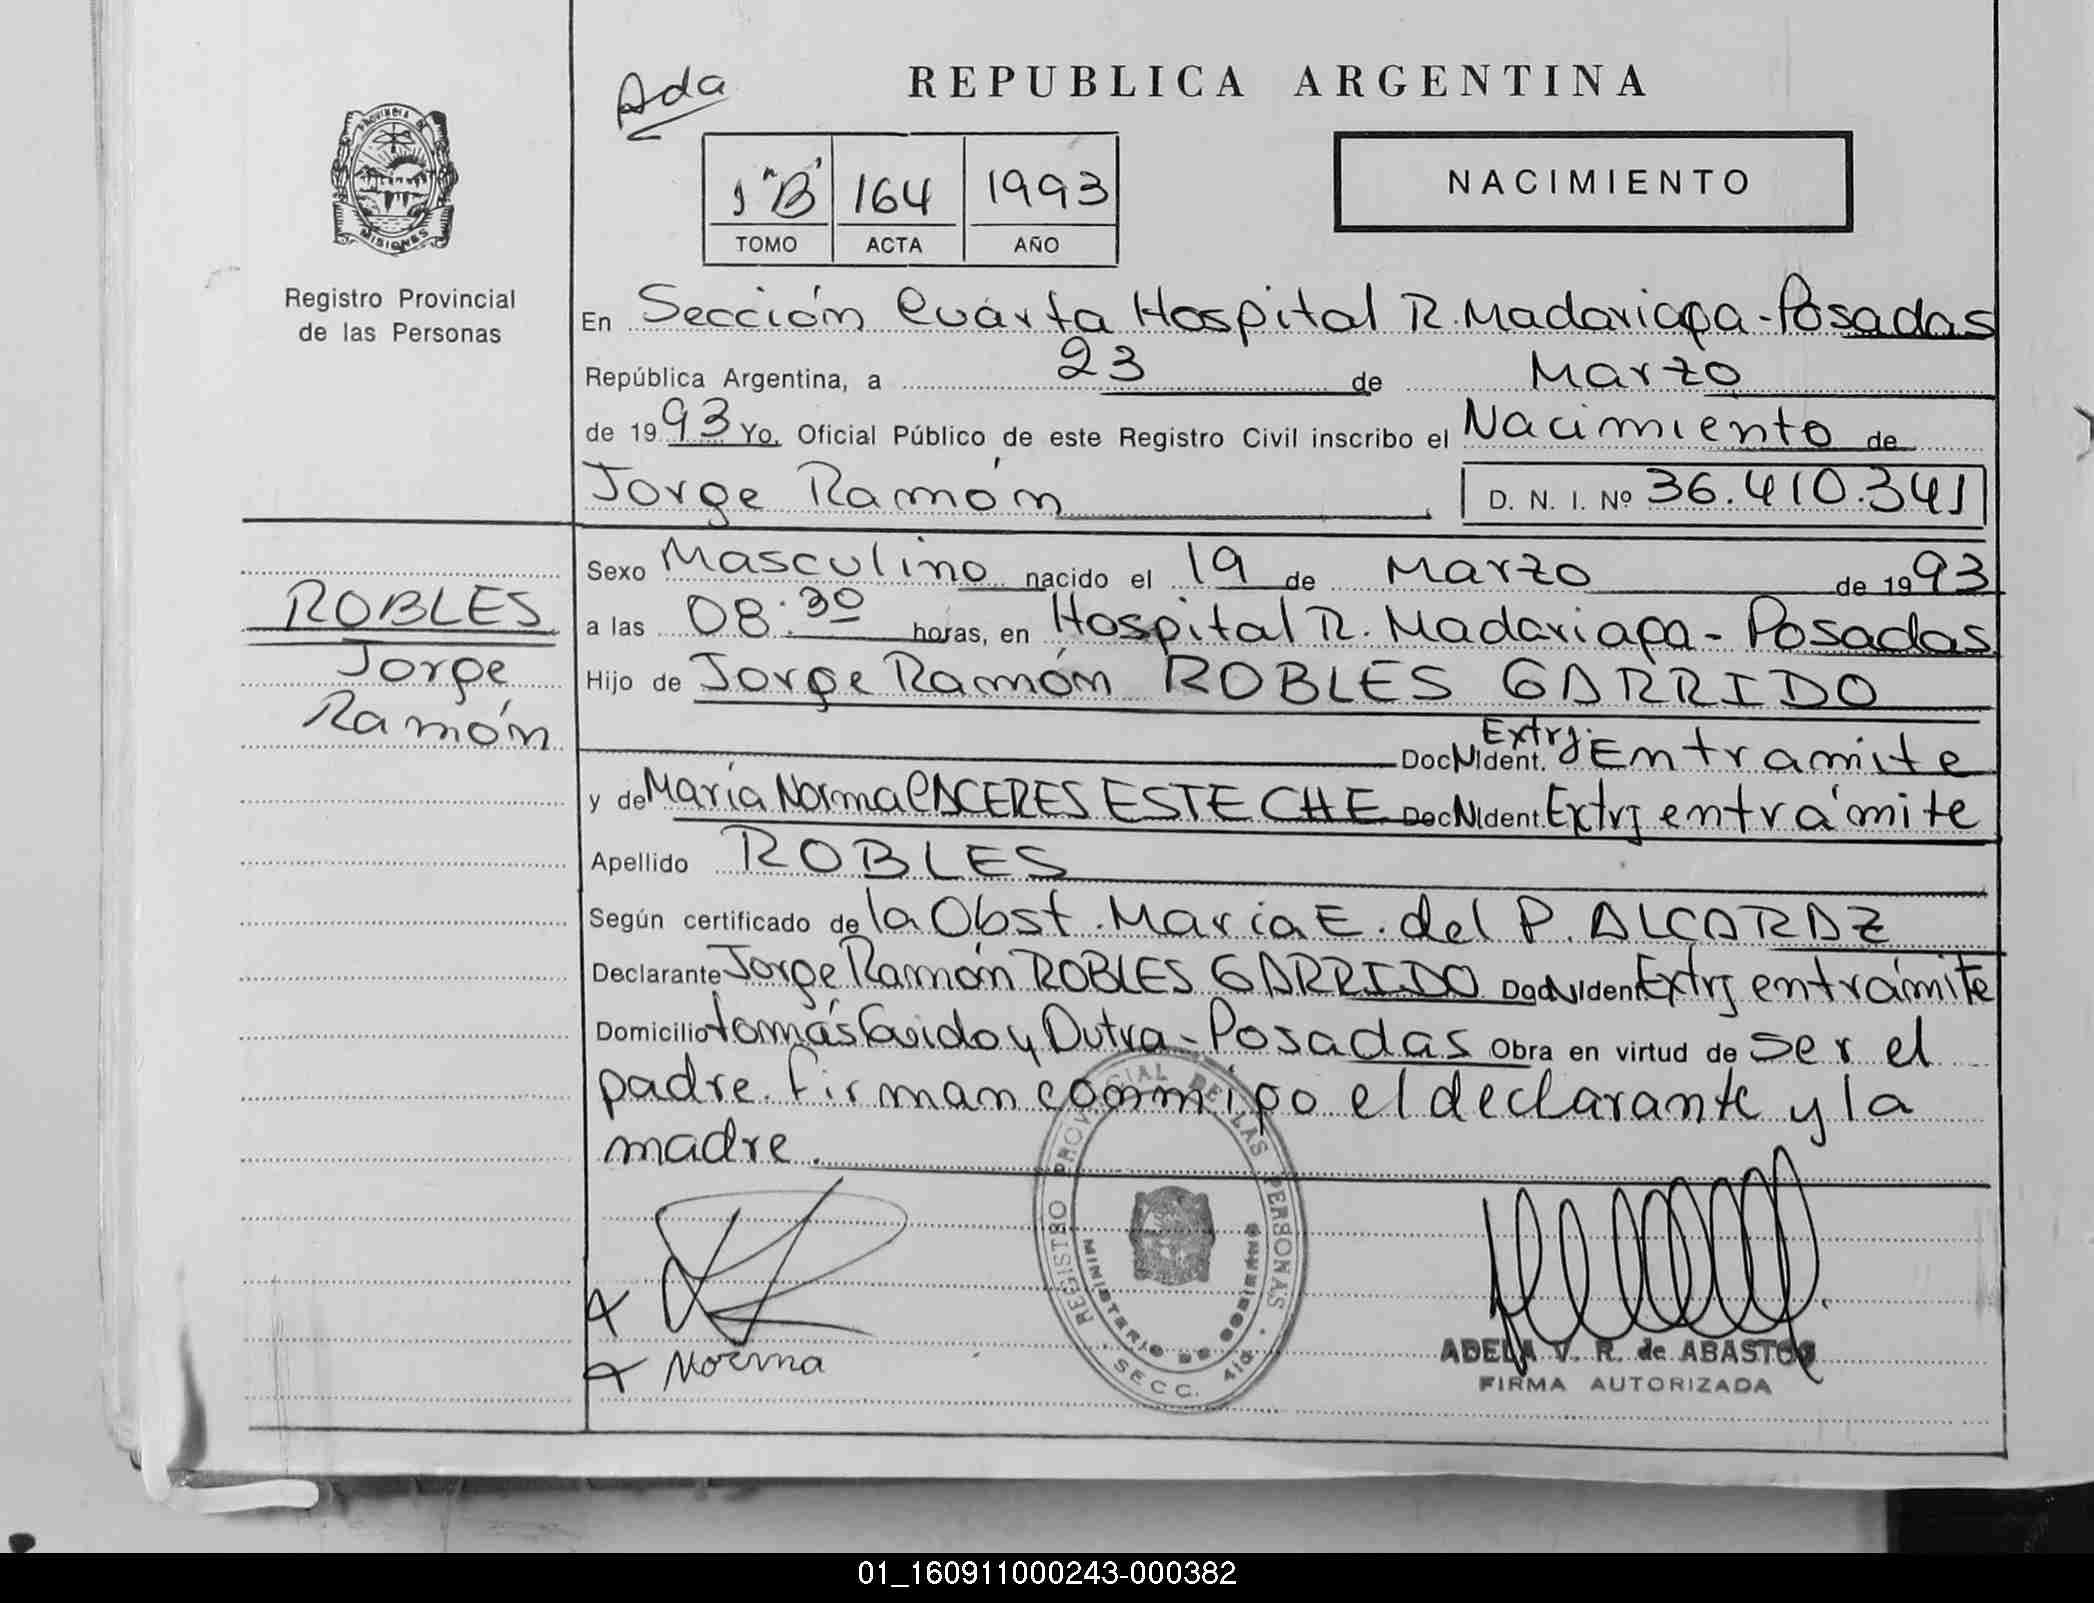 Ada
REPUBLICA ARGENTINA
PROVINCIA DE
MISIONES
1 "B" 164 1993
TOMO ACTA AÑO
NACIMIENTO
Registro Provincial
de las Personas
En Sección Cuarta Hospital R. Madariaga - Posadas
República Argentina, a 23 de Marzo
de 1993 Yo, Oficial Público de este Registro Civil inscribo el Nacimiento de
Jorge Ramón D. N. I. Nº 36.410.341
Sexo Masculino nacido el 19 de Marzo de 1993
a las 08:30 horas, en Hospital R. Madariaga - Posadas
Hijo de Jorge Ramón ROBLES GARRIDO
Doc N Ident. Extrj. En tramite
y de María Norma CACERES ESTECHE Doc N Ident. Extrj en trámite
Apellido ROBLES
Según certificado de la Obst. María E. del P. ALCARAZ
Declarante Jorge Ramón ROBLES GARRIDO Doc N Ident Extrj en trámite
Domicilio tomás Guido y Dutra - Posadas Obra en virtud de ser el
padre. firman conmigo el declarante y la
madre.
ROBLES
Jorge
Ramón
REGISTRO PROVINCIAL DE LAS PERSONAS
MINISTERIO DE GOBIERNO
SECC. 4ta.
Norma
ADELA V. R. de ABASTOS
FIRMA AUTORIZADA
01_160911000243-000382